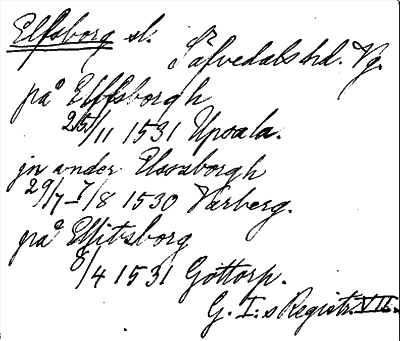 Elfsborg sl. Säfvedals hd. Vg.
på Elffsborgh
25/11 1531 Upsala.
jn under Elassborgh
29/7–7/8 1530 Varberg.
på Elfitsborg
8/4 1531 Gottorp.
G. I:s Registr. VII.